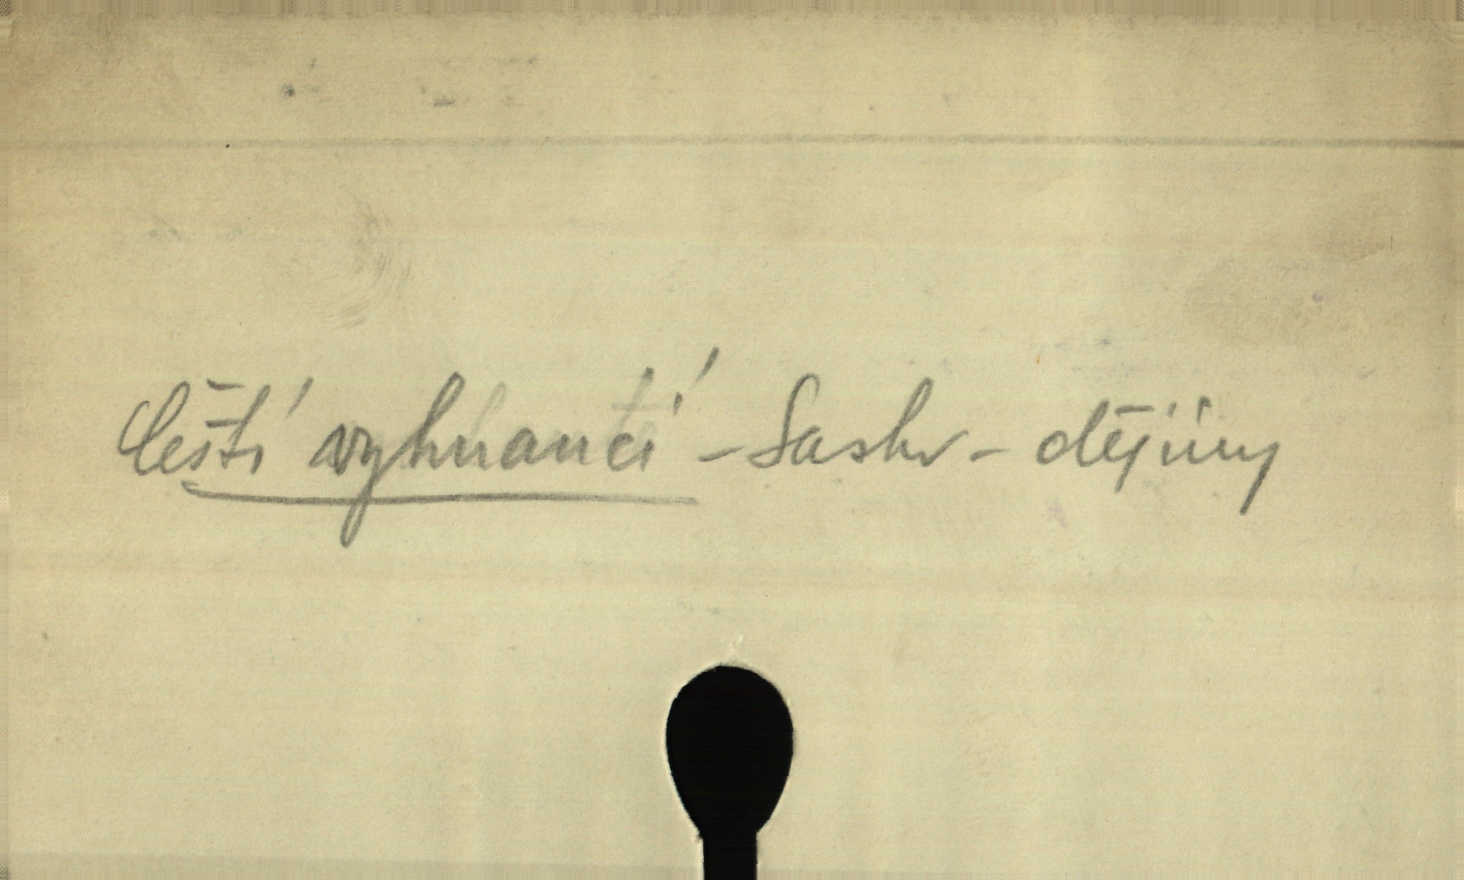 Čeští vyhnanci - Sasko - dějiny